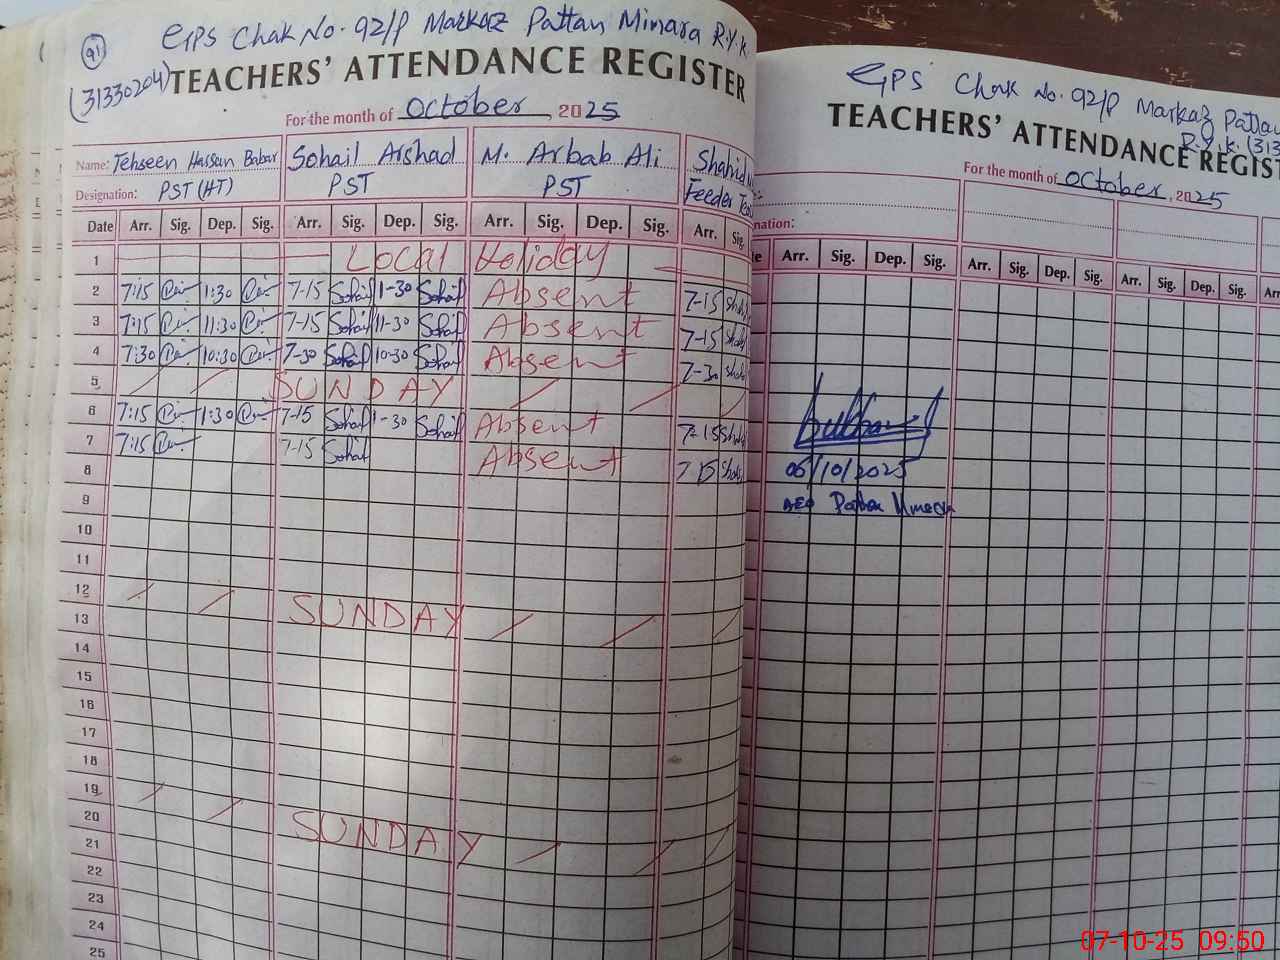 91
GPS Chak No. 92/P Markaz Pattan Minara R.Y.K
(31330204) TEACHERS' ATTENDANCE REGISTER
For the month of October, 2025
Name: Tehseen Hassan Babar Sohail Arshad M. Arbab Ali Shahid
Designation: PST (HT) PST PST Feeder
Date Arr. Sig. Dep. Sig. Arr. Sig. Dep. Sig. Arr. Sig. Dep. Sig. Arr. Sig.
1 Local Holiday
2 7:15 1:30 7-15 Sohail 1-30 Sohail Absent 7-15
3 7:15 11:30 7-15 Sohail 11-30 Sohail Absent 7-15
4 7:30 10:30 7-30 Sohail 10-30 Sohail Absent 7-30
5 SUNDAY
6 7:15 1:30 7-15 Sohail 1-30 Sohail Absent 7-15
7 7:15 7-15 Sohail Absent 7-15
8
9
10
11
12 SUNDAY
13
14
15
16
17
18
19 SUNDAY
20
21
22
23
24
25
GPS Chak No. 92/P Markaz Pattan
R.Y.K. (313
TEACHERS' ATTENDANCE REGIST
For the month of October, 2025
nation:
Arr. Sig. Dep. Sig. Arr. Sig. Dep. Sig. Arr. Sig. Dep. Sig. Ar
06/10/2025
AEO Pattan Minara
07-10-25 09:50